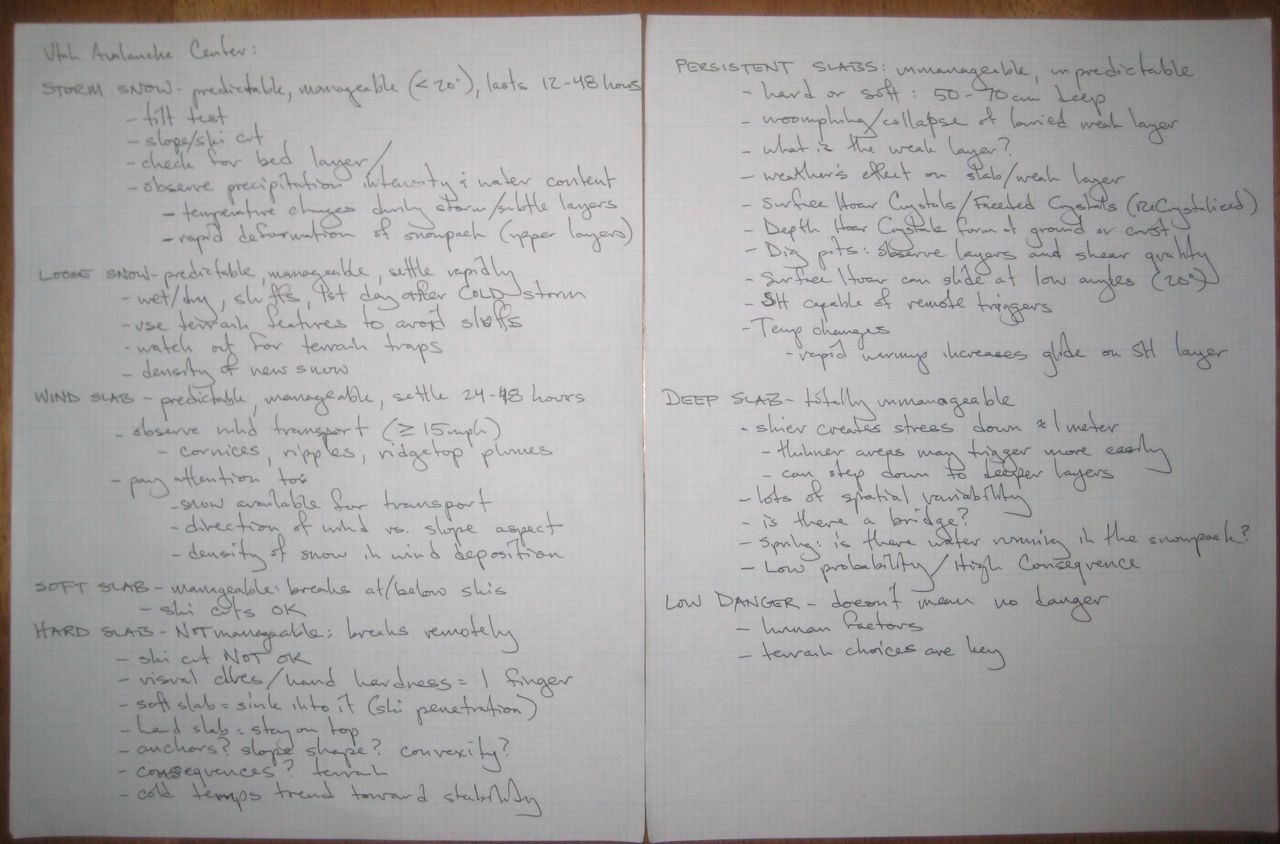 Utah Avalanche Center:
STORM SNOW - predictable, manageable (<20°), lasts 12-48 hours
- tilt test
- slope/ski cut
- check for bed layer/
- observe precipitation intensity & water content
- temperature changes during storm/subtle layers
- rapid deformation of snowpack (upper layers)
LOOSE SNOW - predictable, manageable, settle rapidly
- wet/dry, sluffs, 1st day after COLD storm
- use terrain features to avoid sluffs
- watch out for terrain traps
- density of new snow
WIND SLAB - predictable, manageable, settle 24-48 hours
- observe wind transport (≥15mph)
- cornices, ripples, ridgetop plumes
- pay attention to:
- snow available for transport
- direction of wind vs. slope aspect
- density of snow in wind deposition
SOFT SLAB - manageable: breaks at/below skis
- ski cuts OK
HARD SLAB - NOT manageable: breaks remotely
- ski cut NOT OK
- visual clues/hand hardness = 1 finger
- soft slab = sink into it (ski penetration)
- hard slab = stay on top
- anchors? slope shape? convexity?
- consequences? terrain
- cold temps trend toward stability
PERSISTENT SLABS: unmanageable, unpredictable
- hard or soft: 50-70cm deep
- woomphing/collapse of buried weak layer
- what is the weak layer?
- weather's effect on slab/weak layer
- Surface Hoar Crystals/Faceted Crystals (ReCrystalized)
- Depth Hoar Crystals form at ground or crust
- Dig pits: observe layers and shear quality
- Surface Hoar can slide at low angles (20°)
- SH capable of remote triggers
- Temp changes
- rapid warmup increases glide on SH layer
DEEP SLAB - totally unmanageable
- skier creates stress down ≈ 1 meter
- thinner areas may trigger more easily
- can step down to deeper layers
- lots of spatial variability
- is there a bridge?
- Spring: is there water running in the snowpack?
- Low probability/High Consequence
LOW DANGER - doesn't mean no danger
- human factors
- terrain choices are key